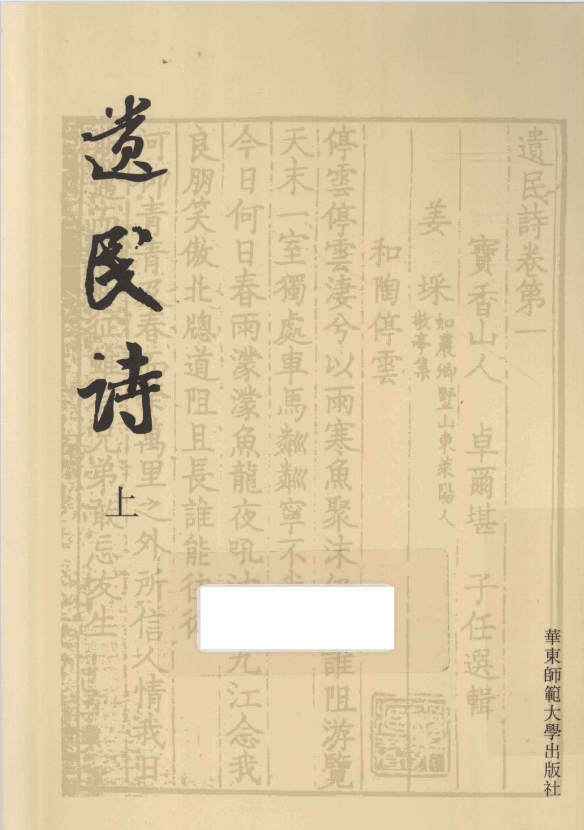 遺民詩
上
遺民詩卷第一
寶香山人 卓爾堪 子任選輯
姜埰 如農鄉墅山東萊陽人
敬亭集
和陶停雲
停雲停雲淒兮以雨寒魚聚沫誰阻游覽
天末一室獨處車馬粼粼寧不
今日何日春雨濛濛魚龍夜吼九江念我
良朋笑傲北牕道阻且長誰能往
青青春萬里之外所信人情我日
征兄弟敢忘友生
華東師範大學出版社